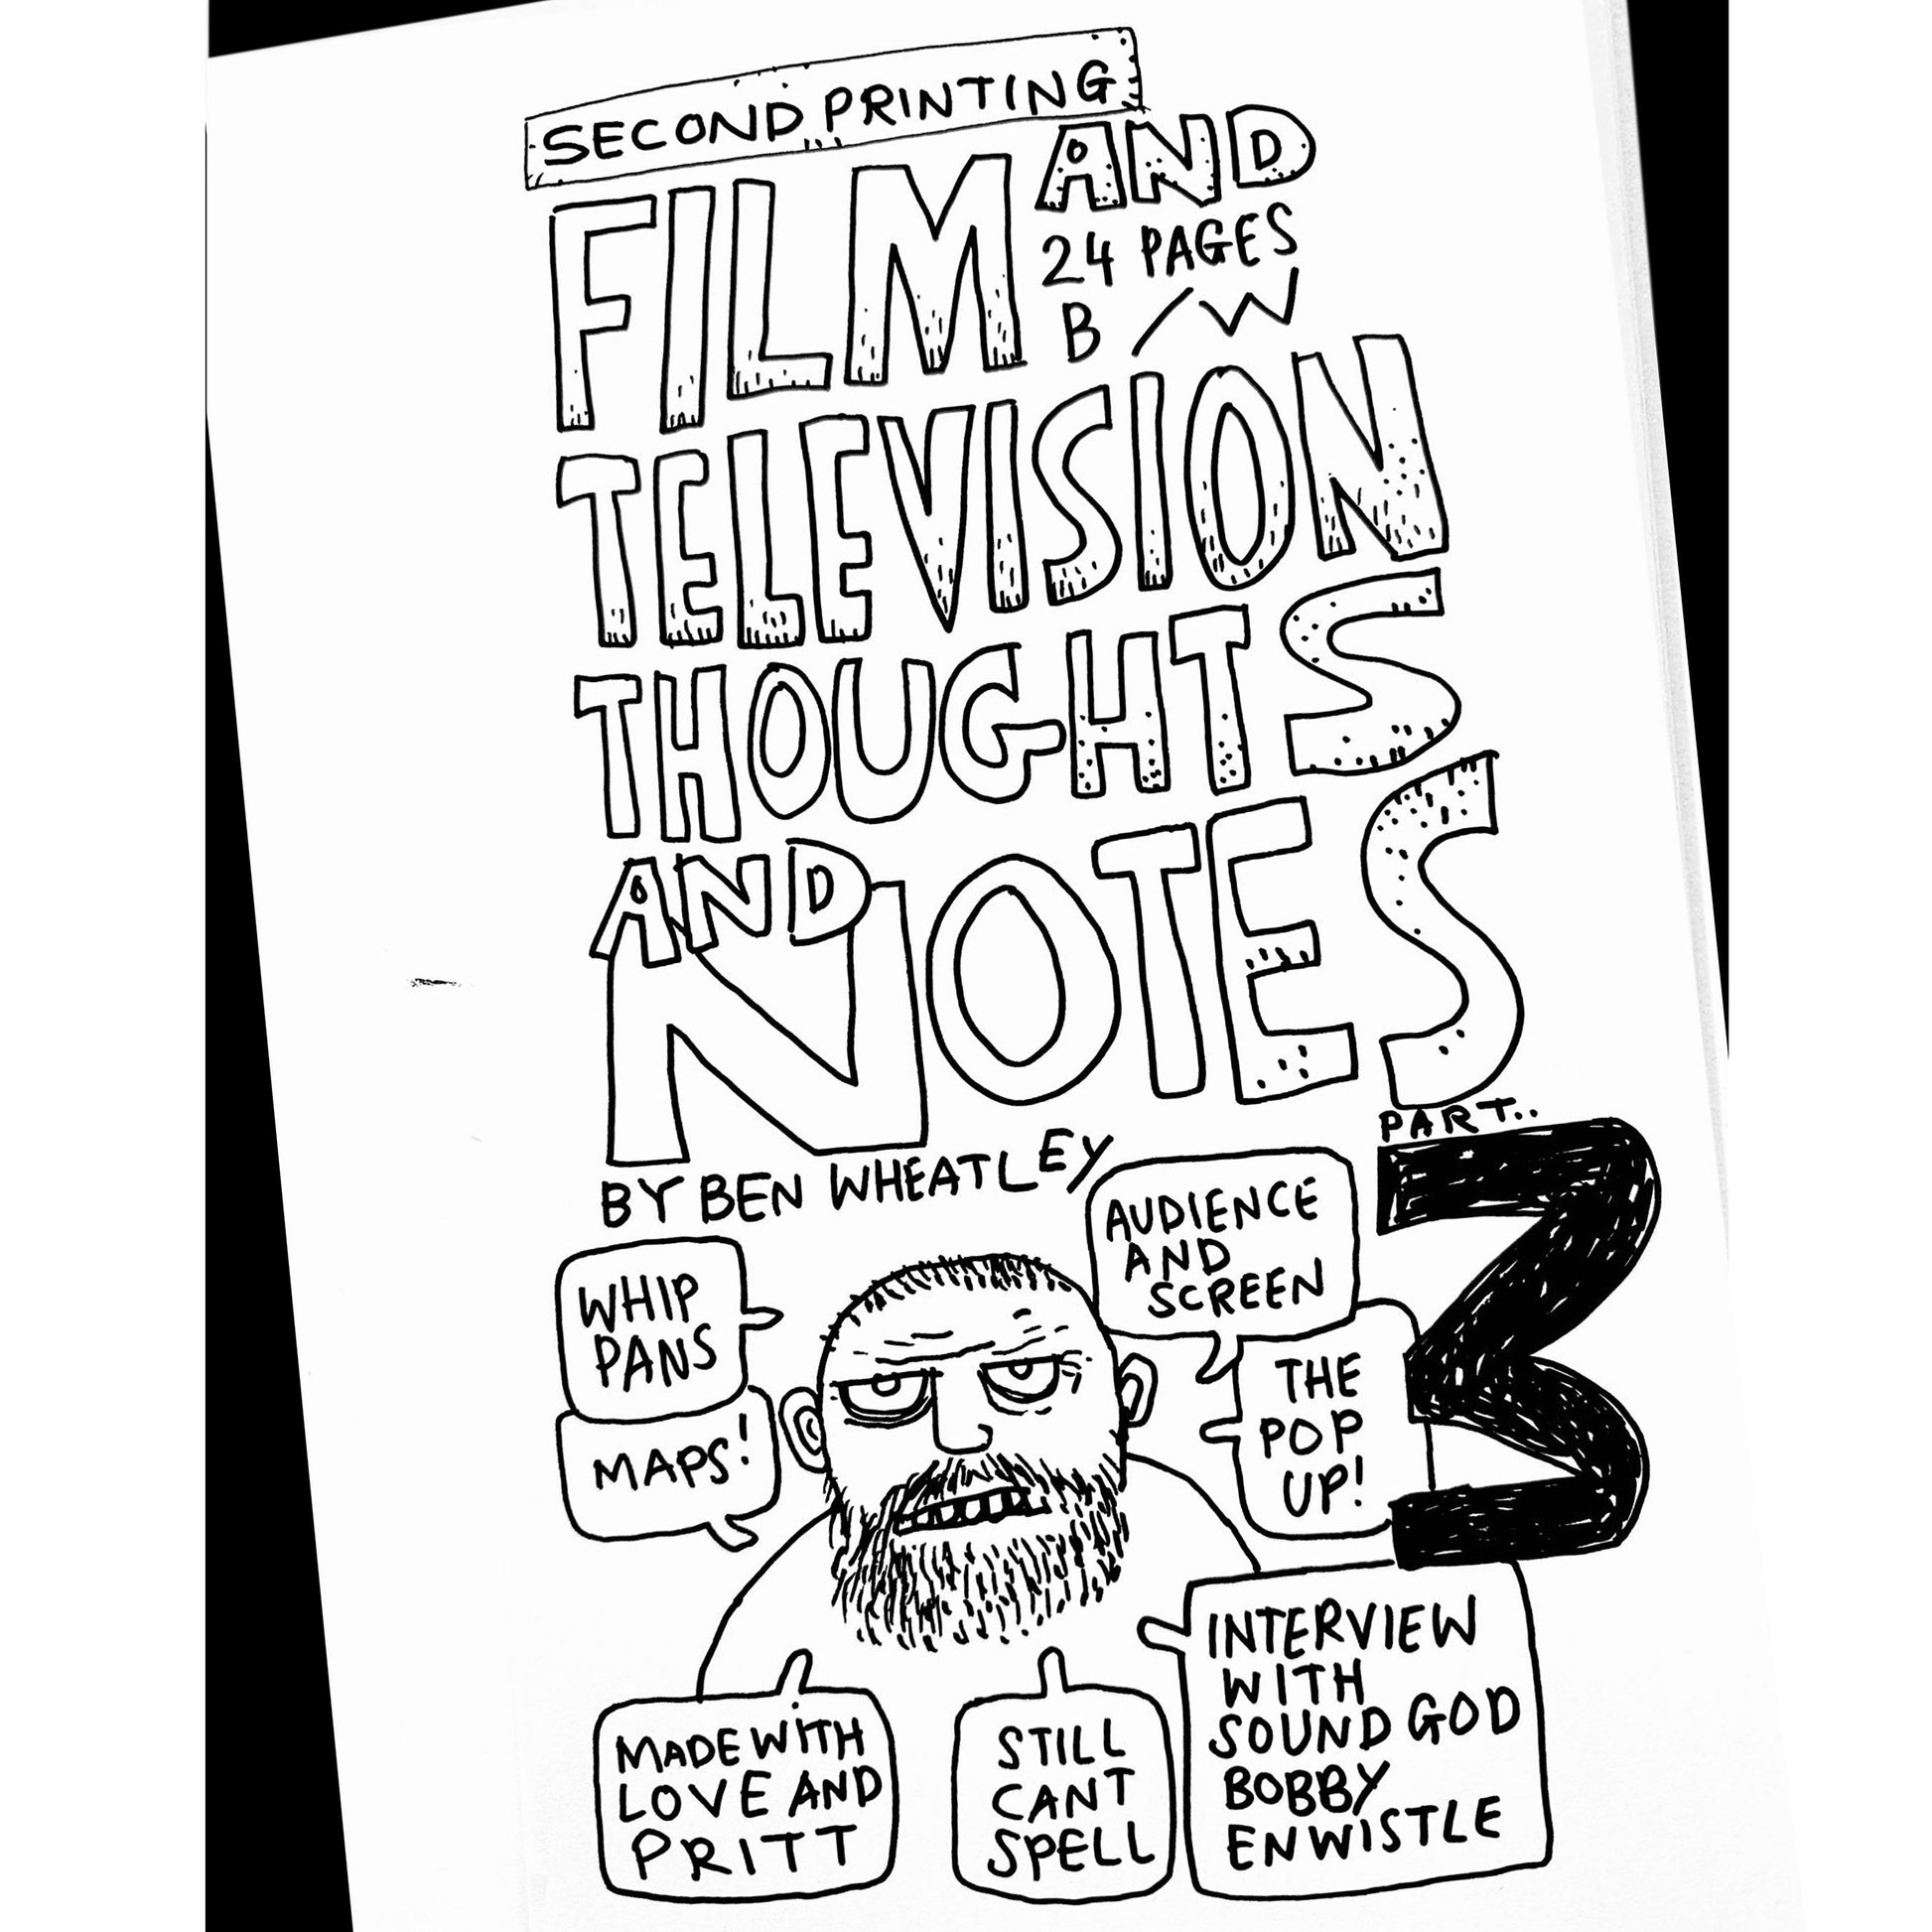 SECOND PRINTING
FILM AND
24 PAGES
B/W
TELEVISION
THOUGHTS
AND
NOTES
PART..
3
BY BEN WHEATLEY
AUDIENCE
AND
SCREEN
WHIP
PANS
THE
POP
UP!
MAPS!
INTERVIEW
WITH
SOUND GOD
BOBBY
ENWISTLE
MADE WiTH
LOVE AND
PRITT
STILL
CANT
SPELL